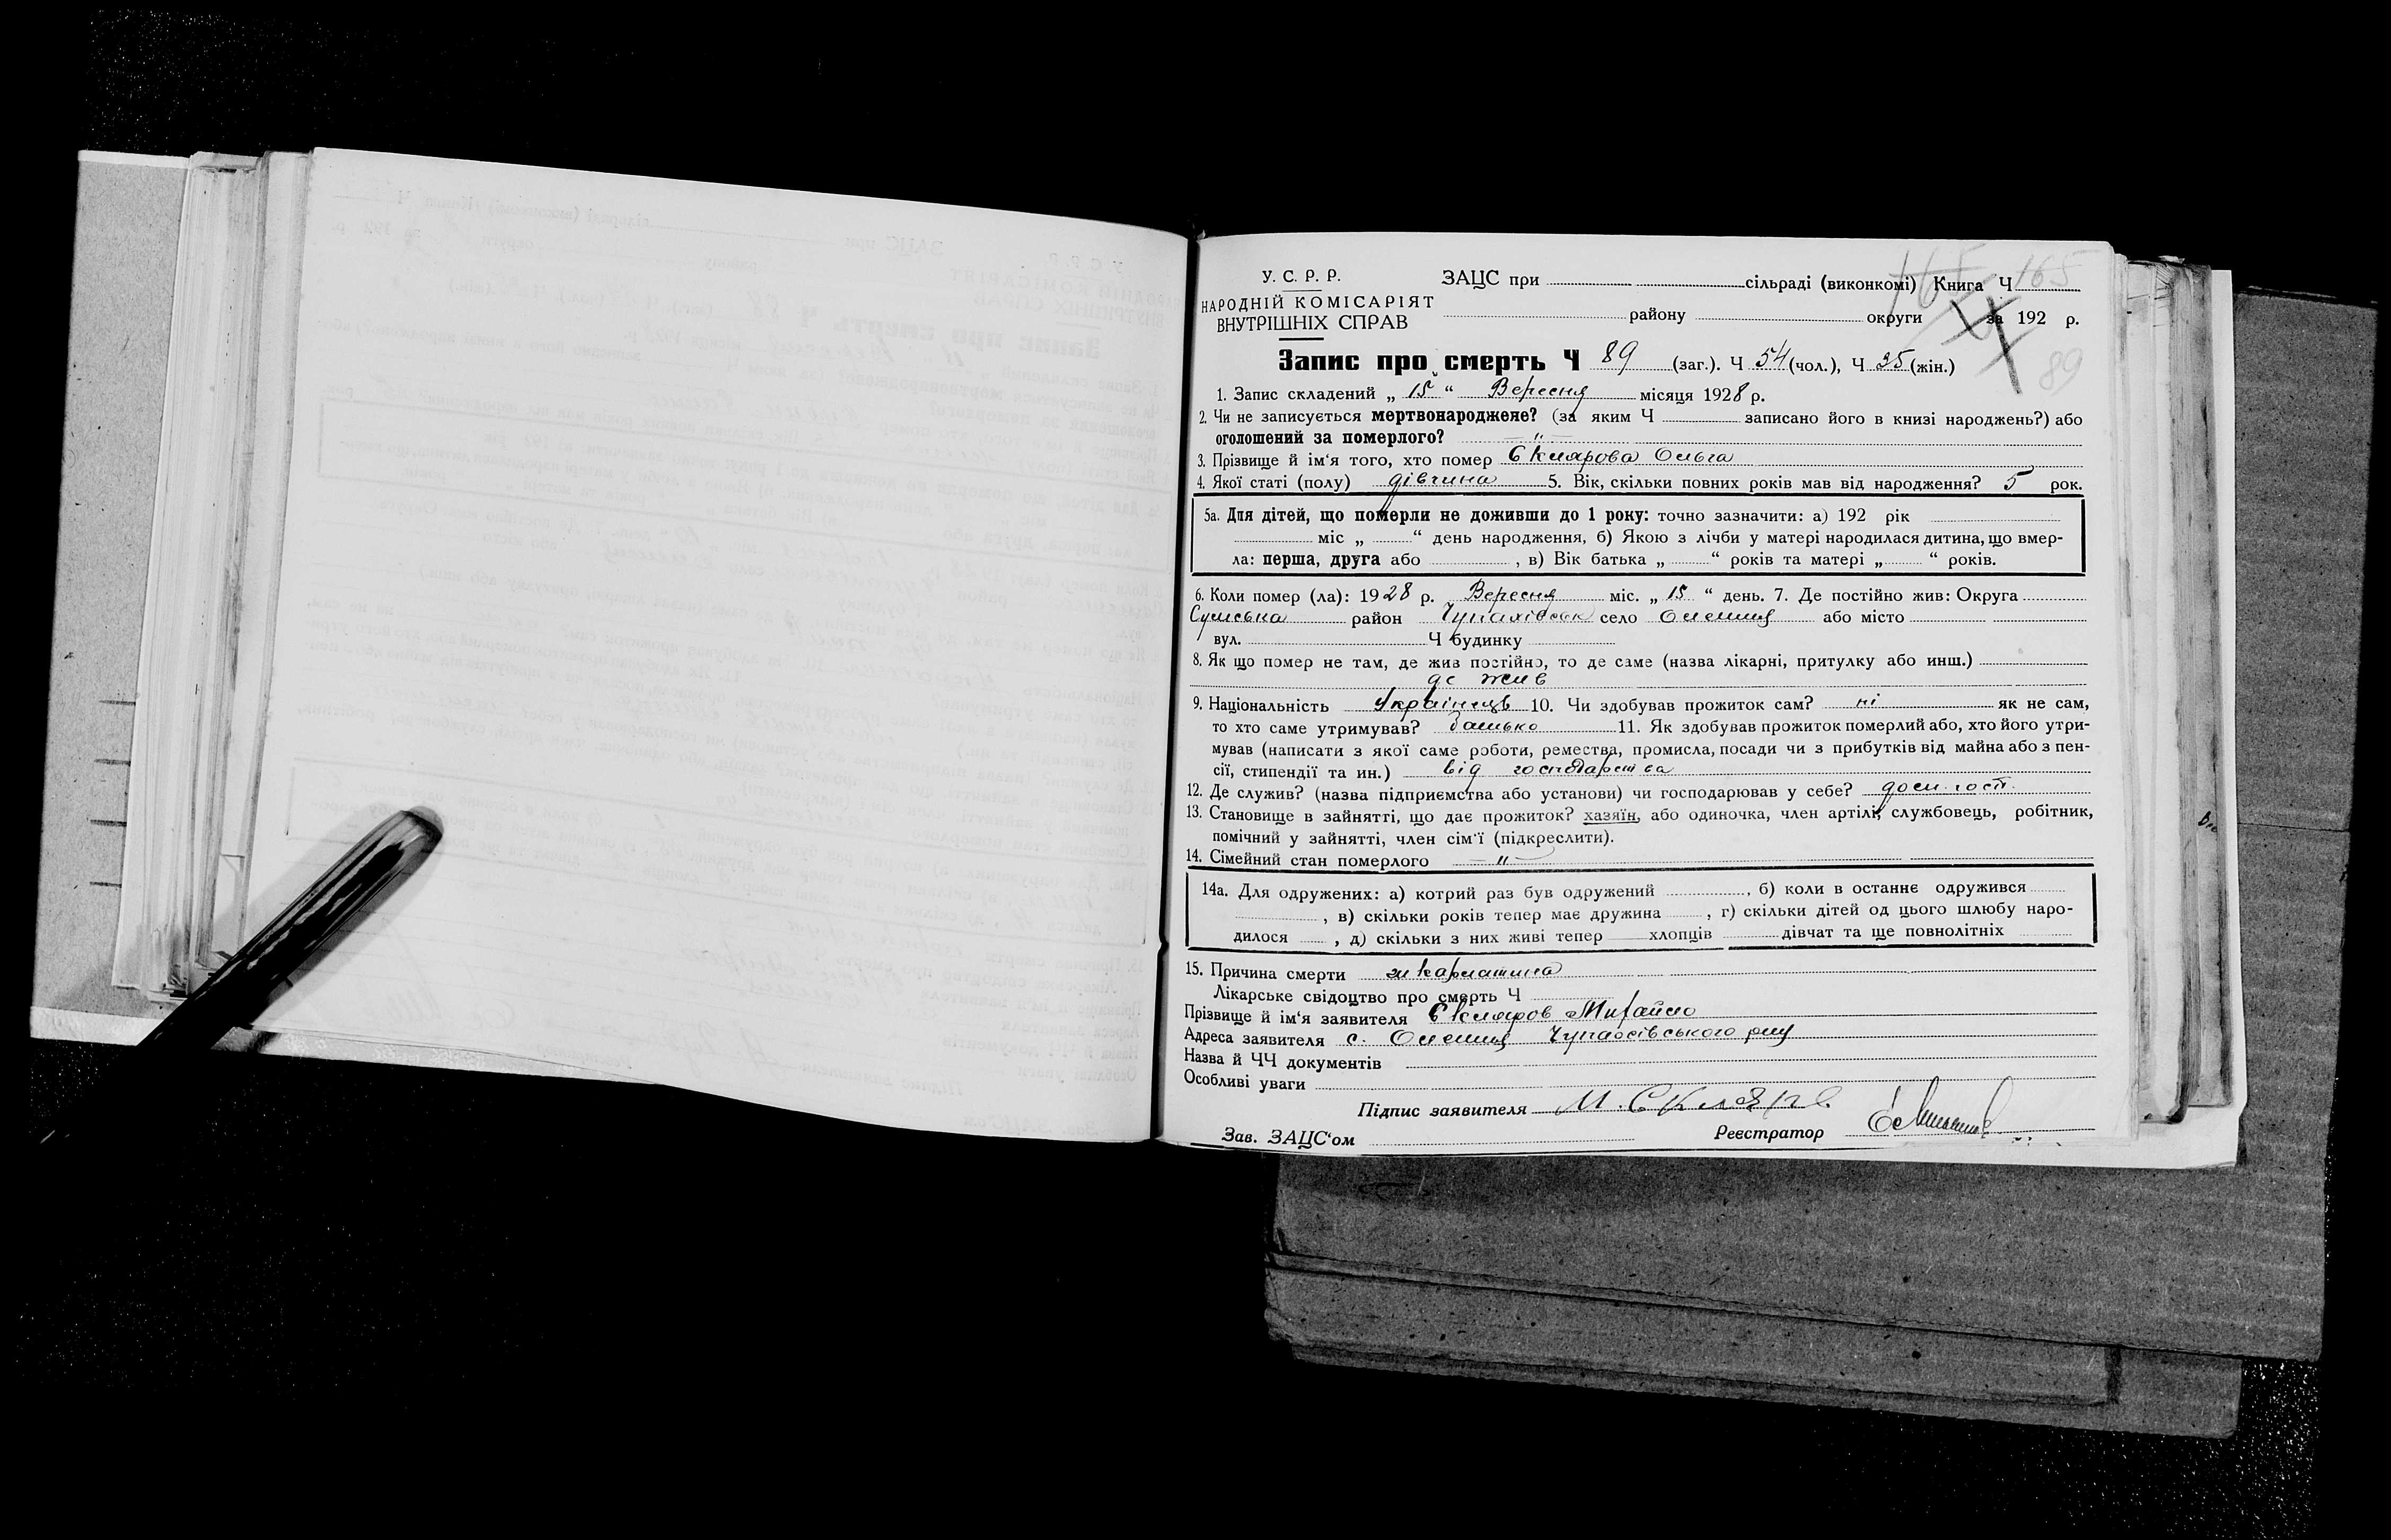 У. С. Р. Р.
НАРОДНІЙ КОМІСАРІЯТ
ВНУТРІШНІХ СПРАВ
ЗАЦС при сільраді (виконкомі) Книга Ч 165
району округи за 192 р.
Запис про смерть Ч 89 (заг.). Ч 54 (чол.), Ч 35 (жін.)
89
1. Запис складений „ 15 “ Вересня місяця 1928 р.
2. Чи не записується мертвонароджене? (за яким Ч записано його в книзі народжень?) або
оголошений за померлого? — " —
3. Прізвище й ім'я того, хто помер Склярова Ольга
4. Якої статі (полу) дівчина 5. Вік, скільки повних років мав від народження? 5 рок.
5а. Для дітей, що померли не доживши до 1 року: точно зазначити: а) 192 рік
міс „ “ день народження, б) Якою з лічби у матері народилася дитина, що вмер-
ла: перша, друга або , в) Вік батька „ “ років та матері „ “ років.
6. Коли помер (ла): 1928 р. Вересня міс. „ 15 “ день. 7. Де постійно жив: Округа
Сумська район Чупахівськ село Олешня або місто
вул. Ч будинку
8. Як що помер не там, де жив постійно, то де саме (назва лікарні, притулку або инш.)
де жив
9. Національність Українець 10. Чи здобував прожиток сам? ні як не сам,
то хто саме утримував? батько 11. Як здобував прожиток померлий або, хто його утри-
мував (написати з якої саме роботи, ремества, промисла, посади чи з прибутків від майна або з пен-
сії, стипендії та ин.) від господарства
12. Де служив? (назва підприємства або установи) чи господарював у себе? дом. госп.
13. Становище в зайнятті, що дає прожиток? хазяїн, або одиночка, член артілі, службовець, робітник,
помічний у зайнятті, член сім'ї (підкреслити).
14. Сімейний стан померлого — " —
14а. Для одружених: а) котрий раз був одружений , б) коли в останнє одружився
, в) скільки років тепер має дружина , г) скільки дітей од цього шлюбу наро-
дилося , д) скільки з них живі тепер хлопців дівчат та ще повнолітніх
15. Причина смерти шкарлатина
Лікарське свідоцтво про смерть Ч
Прізвище й ім'я заявителя Скляров Михайло
Адреса заявителя с. Олешня Чупахівського р-ну
Назва й ЧЧ документів
Особливі уваги
Підпис заявителя М. Скляров
Зав. ЗАЦС'ом Реєстратор